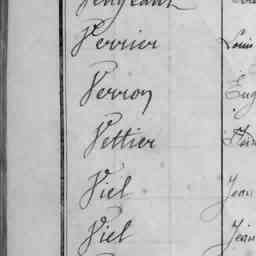 Verrier Louis
Verron Eug
Vettier
Viel Jean
Viel Jean